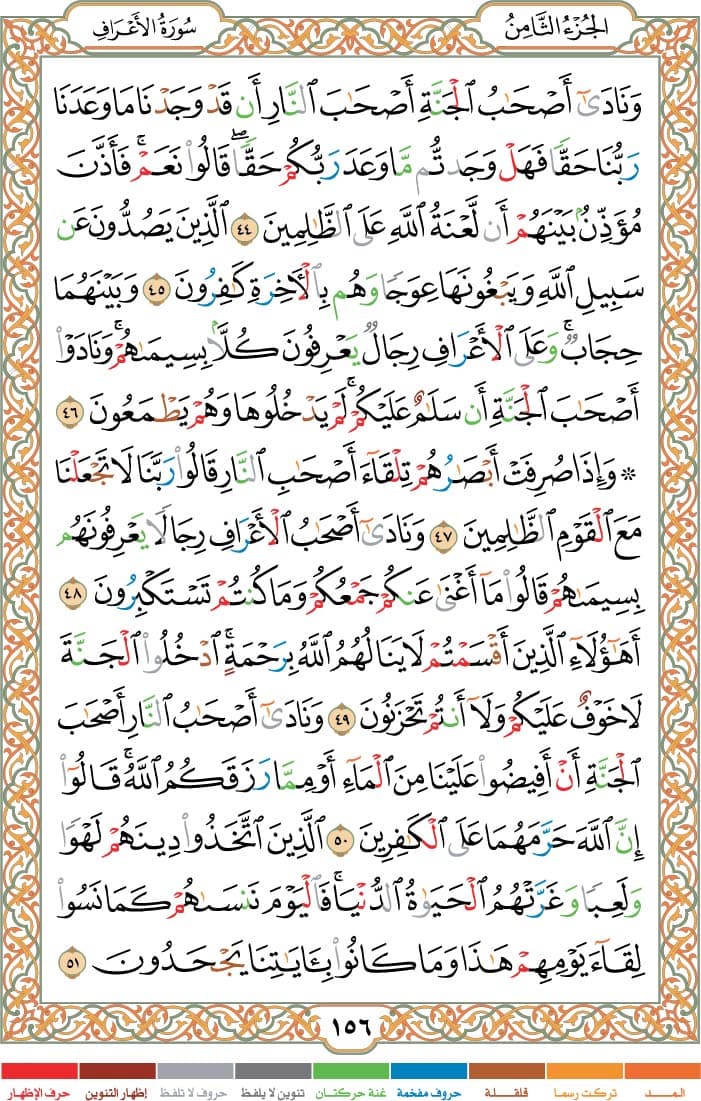 الجُزْءُ الثَّامِنُ
سُورَةُ الأَعْرَافِ
وَنَادَىٰٓ أَصْحَٰبُ ٱلْجَنَّةِ أَصْحَٰبَ ٱلنَّارِ أَن قَدْ وَجَدْنَا مَا وَعَدَنَا
رَبُّنَا حَقًّا فَهَلْ وَجَدتُّم مَّا وَعَدَ رَبُّكُمْ حَقًّا ۖ قَالُوا۟ نَعَمْ ۚ فَأَذَّنَ
مُؤَذِّنٌۢ بَيْنَهُمْ أَن لَّعْنَةُ ٱللَّهِ عَلَى ٱلظَّٰلِمِينَ ٤٤ ٱلَّذِينَ يَصُدُّونَ عَن
سَبِيلِ ٱللَّهِ وَيَبْغُونَهَا عِوَجًا وَهُم بِٱلْءَاخِرَةِ كَٰفِرُونَ ٤٥ وَبَيْنَهُمَا
حِجَابٌ ۚ وَعَلَى ٱلْأَعْرَافِ رِجَالٌ يَعْرِفُونَ كُلًّۢا بِسِيمَىٰهُمْ ۚ وَنَادَوْا۟
أَصْحَٰبَ ٱلْجَنَّةِ أَن سَلَٰمٌ عَلَيْكُمْ ۚ لَمْ يَدْخُلُوهَا وَهُمْ يَطْمَعُونَ ٤٦
* وَإِذَا صُرِفَتْ أَبْصَٰرُهُمْ تِلْقَآءَ أَصْحَٰبِ ٱلنَّارِ قَالُوا۟ رَبَّنَا لَا تَجْعَلْنَا
مَعَ ٱلْقَوْمِ ٱلظَّٰلِمِينَ ٤٧ وَنَادَىٰٓ أَصْحَٰبُ ٱلْأَعْرَافِ رِجَالًا يَعْرِفُونَهُم
بِسِيمَىٰهُمْ قَالُوا۟ مَآ أَغْنَىٰ عَنكُمْ جَمْعُكُمْ وَمَا كُنتُمْ تَسْتَكْبِرُونَ ٤٨
أَهَٰٓؤُلَآءِ ٱلَّذِينَ أَقْسَمْتُمْ لَا يَنَالُهُمُ ٱللَّهُ بِرَحْمَةٍ ۚ ٱدْخُلُوا۟ ٱلْجَنَّةَ
لَا خَوْفٌ عَلَيْكُمْ وَلَآ أَنتُمْ تَحْزَنُونَ ٤٩ وَنَادَىٰٓ أَصْحَٰبُ ٱلنَّارِ أَصْحَٰبَ
ٱلْجَنَّةِ أَنْ أَفِيضُوا۟ عَلَيْنَا مِنَ ٱلْمَآءِ أَوْ مِمَّا رَزَقَكُمُ ٱللَّهُ ۚ قَالُوٓا۟
إِنَّ ٱللَّهَ حَرَّمَهُمَا عَلَى ٱلْكَٰفِرِينَ ٥٠ ٱلَّذِينَ ٱتَّخَذُوا۟ دِينَهُمْ لَهْوًا
وَلَعِبًا وَغَرَّتْهُمُ ٱلْحَيَوٰةُ ٱلدُّنْيَا ۚ فَٱلْيَوْمَ نَنسَىٰهُمْ كَمَا نَسُوا۟
لِقَآءَ يَوْمِهِمْ هَٰذَا وَمَا كَانُوا۟ بِـَٔايَٰتِنَا يَجْحَدُونَ ٥١
١٥٦
المــد تركت رسما قلقلة حروف مفخمة غنة حركتان تنوين لا يلفظ حروف لا تلفظ إظهار التنوين حرف الإظهار